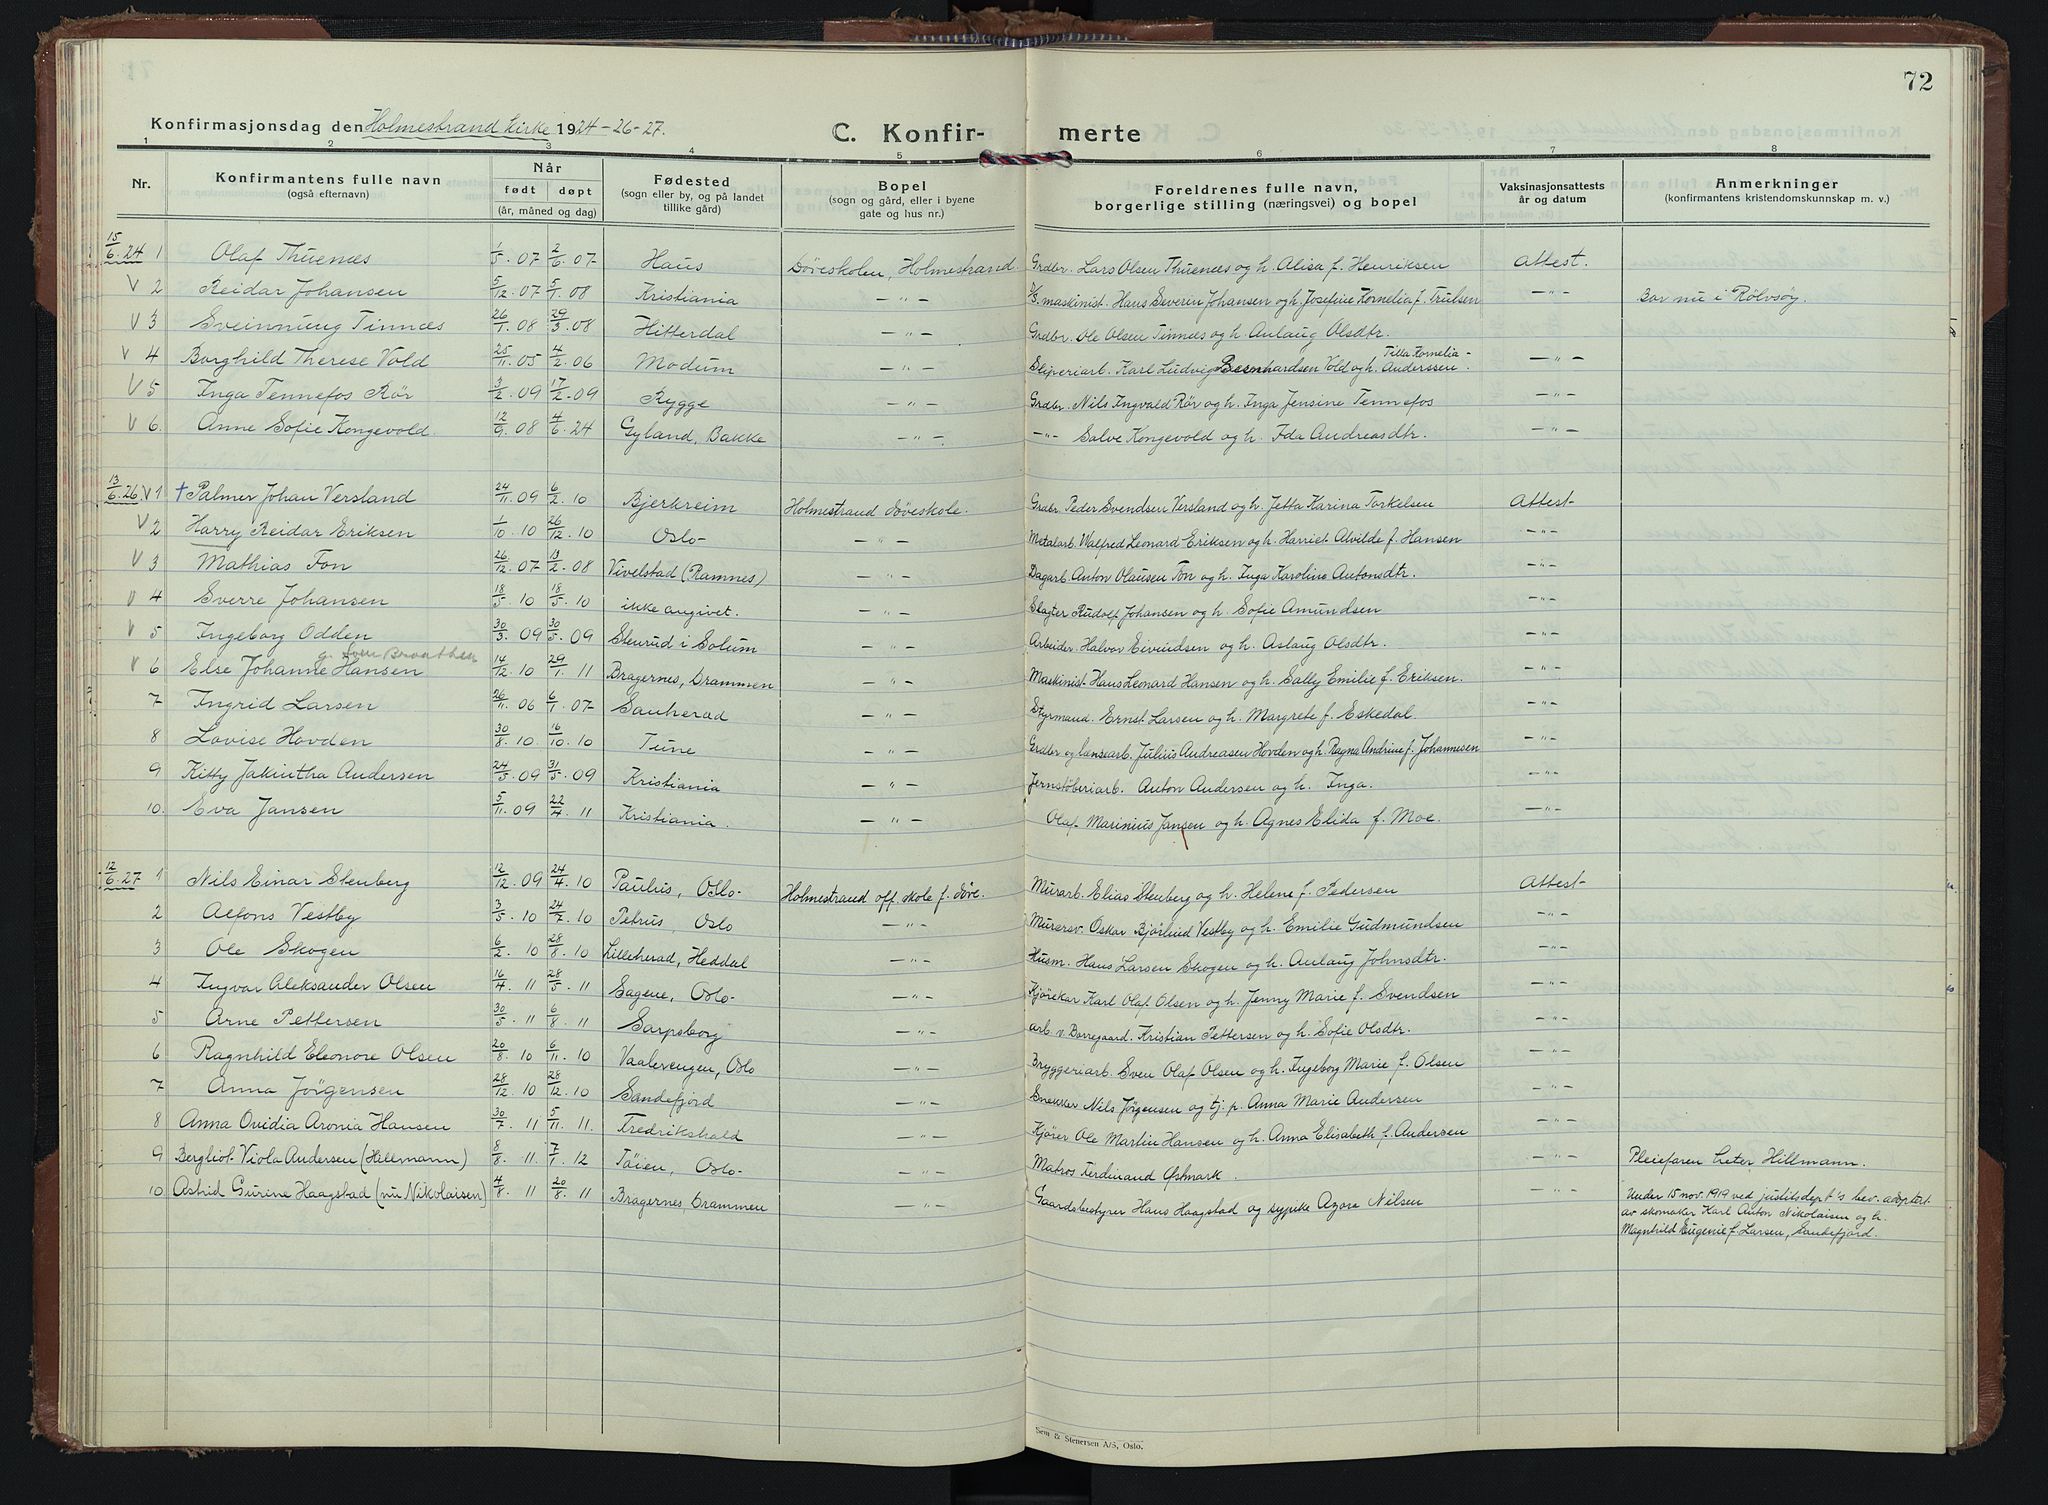 72
Konfirmasjonsdag den Holmestrand kirke 1924-26-27.
C. Konfir- merte
1 2 3 4 5 6 7 8
Nr. Konfirmantens fulle navn (også efternavn) Når født døpt (år, måned og dag) Fødested (sogn eller by, og på landet tillike gård) Bopel (sogn og gård, eller i byene gate og hus nr.) Foreldrenes fulle navn, borgerlige stilling (næringsvei) og bopel Vaksinasjonsattests år og datum Anmerkninger (konfirmantens kristendomskunnskap m. v.)
15/6.24 1 Olaf Thuenæs 1/5.07 2/6.07 Haus Døveskolen, Holmestrand. Grdbr. Lars Olsen Thuenæs og h. Alisa f. Henriksen Attest.
V 2 Reidar Johansen 5/12.07 5/1.08 Kristiania —"— maskinist. Hans Severin Johansen og h. Josefine Kornelia f. Trulsen —"— Bor nu i Rölvsöy.
V 3 Sveinnung Tinnæs 26/1.08 29/3.08 Hitterdal —"— Grdbr. Ole Olsen Tinnæs og h. Aulaug Olsdtr.
V 4 Borghild Therese Vold 25/11.05 4/2.06 Modum —"— Sliperiarb. Karl Ludvig Bernhardsen Vold og h. Tilla Kornelia Anderssen. —"—
V 5 Inga Tennefos Rör 3/2.09 17/2.09 Rygge —"— Grdbr. Nils Ingvald Rör og h. Inga Jensine Tennefos —"—
V 6. Anne Sofie Kongevold. 12/9.08 4/6.24 Gyland, Bakke —"— —"— Salve Kongevold og h. Ida Andreasdtr. —"—
13/6.26 V 1 + Palmer Johan Versland 24/11.09 6/2.10 Bjerkreim Holmestrand døveskole. Grdbr. Peder Svendsen Versland og h. Jetta Karina Torkelsen Attest
V 2 Harry Reidar Eriksen 1/10.10 26/12.10 Oslo —"— Metalarb. Walfred Leonard Eriksen og h. Harriet Alvilde f. Hansen —"—
V 3 Mathias Fon 26/12.07 13/2.08 Vivelstad (Ramnes) —"— Dagarb. Anton Olausen Fon og h. Inga Karoline Antonsdtr. —"—
V 4 Sverre Johansen 18/5.10 18/5.10 ikke angivet. —"— Slagter Rudolf Johansen og h. Sofie Amundsen —"—
V 5 Ingeborg Odden 30/3.09 30/5.09 Stenrud i Solum —"— Arbeider. Halvor Eivindsen og h. Aslaug Olsdtr. —"—
g. Sven Braathen
V 6 Else Johanne Hansen 14/12.10 29/1.11 Bragernes, Drammen —"— Maskinist Hans Leonard Hansen og h. Sally Emilie f. Eriksen. —"—
7 Ingrid Larsen 26/11.06 6/1.07 Sauherad —"— Styrmand. Ernst Larsen og h. Margrete f. Eskedal. —"—
8 Lovise Hovden 30/8.10. 16/10.10 Tune —"— Grdbr og lensearb. Julius Andreasen Hovden og h. Ragna Andrine f. Johannesen —"—
9 Kitty Jakintha Andersen 24/5.09 31/5.09 Kristiania —"— Jernstöberiarb. Anton Andersen og h. Inga. —"—
10. Eva Jansen 5/11.09 22/4.11 Kristiania. —"— Olaf Marinius Jansen og h. Agnes Elida f. Moe. —"—
12/6.27 1 Nils Einar Stenberg 12/12.09 24/4.10 Paulus, Oslo Holmestrand off. skole f. døve. Murarb. Elias Stenberg og h. Helene f. Pedersen Attest
2 Alfons Vestby 3/5.10 24/7.10 Petrus, Oslo —"— Murersv. Oskar Bjørlund Vestby og h. Emilie Gudmundsen —"—
3 Ole Skogen 6/2.10 28/8.10 Lilleherad, Heddal —"— Husm. Hans Larsen Skogen og h. Aulaug Johnsdtr. —"—
4 Ingvar Aleksander Olsen 16/4.11 28/5.11 Sagene, Oslo —"— Kjörekar Karl Olaf Olsen og h. Jenny Marie f. Svendsen —"—
5 Arne Pettersen 30/5.11 6/8.11 Sarpsborg —"— arb. v. Borregaard. Kristian Pettersen og h. Sofie Olsdtr. —"—
6 Ragnhild Eleonore Olsen 20/8.10 6/11.10 Vaalerengen, Oslo —"— Bryggeriarb. Sven Olaf Olsen og h. Ingeborg Marie f. Olsen —"—
7 Anna Jörgensen 28/12.10 28/12.10 Sandefjord —"— Snekker Nils Jörgensen og tj. p. Anna Marie Andersen —"—
8 Anna Ovidia Aronia Hansen 30/7.11 5/11.11. Fredrikshald —"— Kjörer Ole Martin Hansen og h. Anna Elisabeth f. Andersen —"—
9 Bergliot Viola Andersen (Hillmann) 8/8.11. 7/1.12 Töien, Oslo —"— Matros Ferdinand Østmark. —"— Pleiefaren heter Hillmann.
10 Astrid Gurine Haagstad (nu Nikolaisen) 4/8.11 20/8.11 Bragernes, Drammen —"— Gaardsbestyrer Hans Haagstad og sypike Agore Nilsen —"— Under 15 nov. 1919 ved justitsdept's bev. adoptert
av skomaker Karl Anton Nikolaisen og h.
Magnhild Eugenie f. Larsen, Sandefjord.
Sem & Stenersen A/S, Oslo.